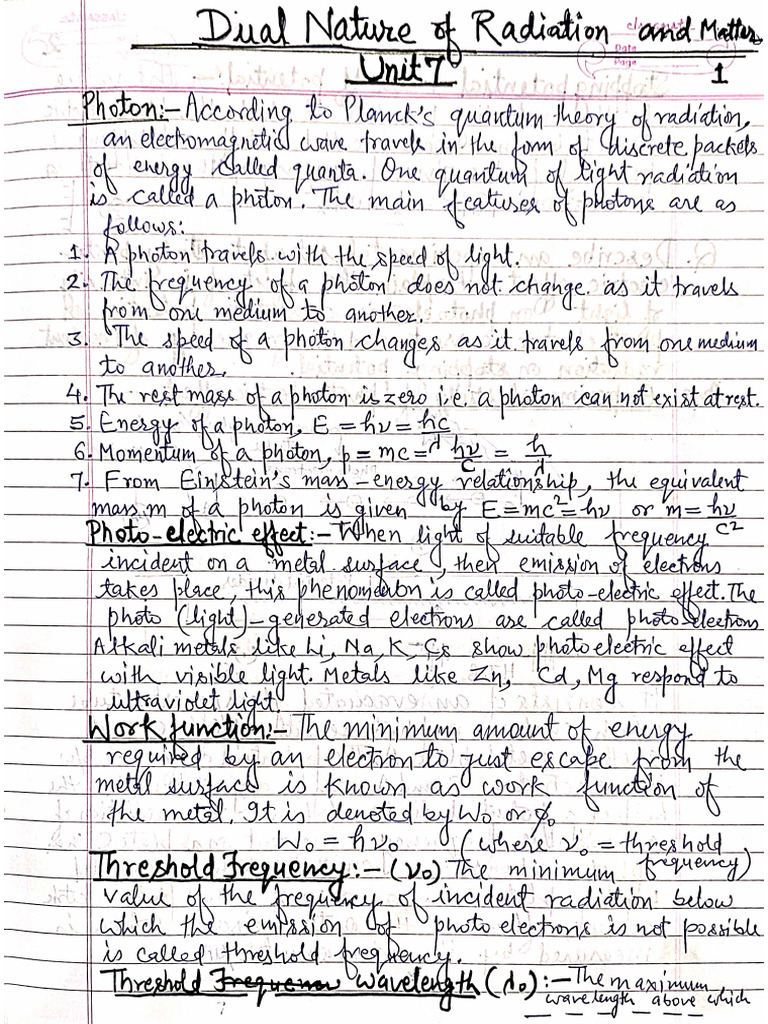 Dual Nature of Radiation and Matter
Unit 7
1
Photon:- According to Planck's quantum theory of radiation,
an electromagnetic wave travels in the form of discrete packets
of energy called quanta. One quantum of light radiation
is called a photon. The main features of photons are as
follows:
1. A photon travels with the speed of light.
2. The frequency of a photon does not change as it travels
from one medium to another.
3. The speed of a photon changes as it travels from one medium
to another.
4. The rest mass of a photon is zero i.e. a photon can not exist at rest.
5. Energy of a photon, E = hν = hc/λ
6. Momentum of a photon, p = mc = hν/c = h/λ
7. From Einstein's mass-energy relationship, the equivalent
mass m of a photon is given by E = mc² = hν or m = hν/c²
Photo-electric effect:- When light of suitable frequency
incident on a metal surface, then emission of electrons
takes place, this phenomenon is called photo-electric effect. The
photo (light)-generated electrons are called photo-electrons
Alkali metals like Li, Na, K, Cs show photo electric effect
with visible light. Metals like Zn, Cd, Mg respond to
ultraviolet light.
Work function:- The minimum amount of energy
required by an electron to just escape from the
metal surface is known as work function of
the metal. It is denoted by W₀ or φ₀
W₀ = hν₀ (where ν₀ = threshold
frequency)
Threshold Frequency:- (ν₀) The minimum
value of the frequency of incident radiation below
which the emission of photo electrons is not possible
is called threshold frequency.
Threshold Wavelength (λ₀):- The maximum
wavelength above which